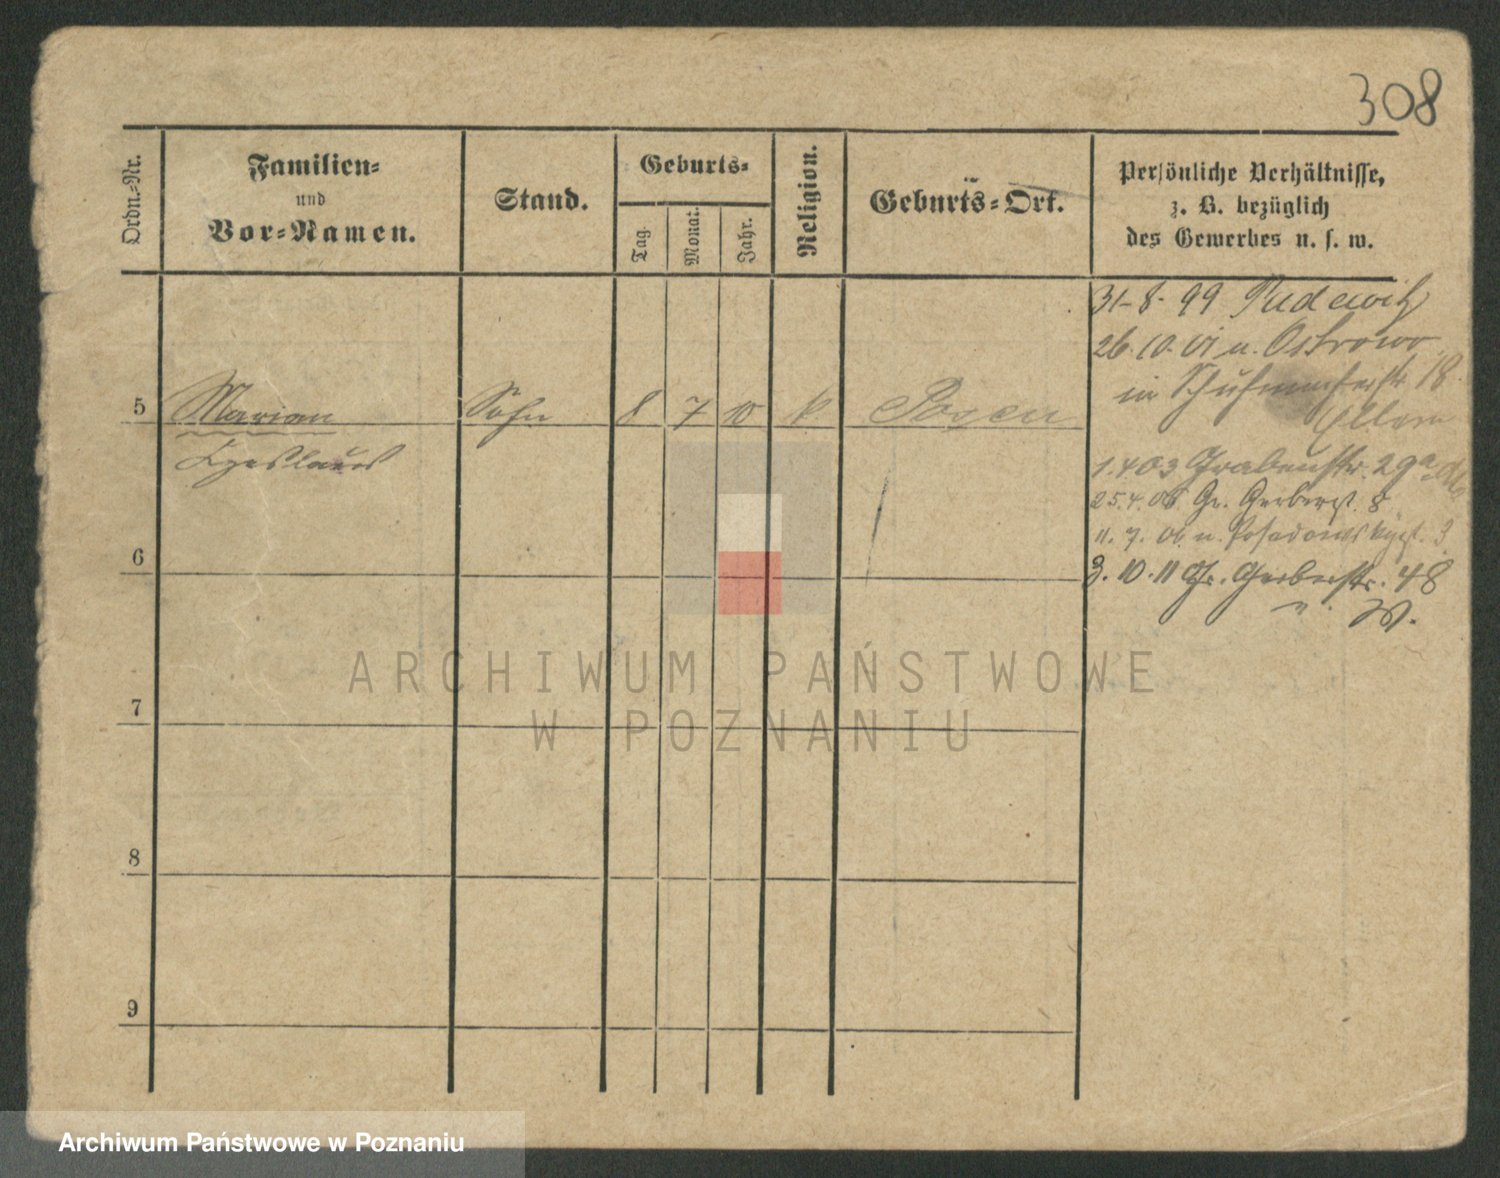 308
Ordn.-Nr.
Familien-
und
Vor-Namen.
Stand.
Geburts-
Tag.
Monat.
Jahr.
Religion.
Geburts-Ort.
Persönliche Verhältnisse,
z. B. bezüglich
des Gewerbes u. s. w.
31-8-99 Pudewitz
26.10.01 u. Ostrowo
in 18
Eltern
5 Marian Sohn 8 7 10 k Posen
1.4 03 Grabenstr. 29a
25.4.06 Gr. Gerberst. 8
11. 7. 06 u. Posadowskyst. 3
6
3. 10. 11 Gr. Gerberstr. 48
u. W.
7
8
9
ARCHIWUM PAŃSTWOWE
W POZNANIU
Archiwum Państwowe w Poznaniu